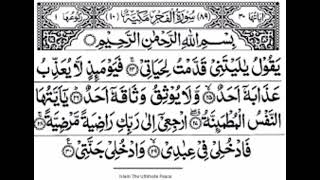 اٰيَاتُهَا ٣٠ (٨٩) سُوْرَةُ الْفَجْرِ مَكِّيَّةٌ (١٠) رُكُوْعُهَا ١
بِسْمِ اللّٰهِ الرَّحْمٰنِ الرَّحِيْمِ
يَقُوْلُ يٰلَيْتَنِيْ قَدَّمْتُ لِحَيَاتِيْ ۚ ٢٤ فَيَوْمَئِذٍ لَّا يُعَذِّبُ
عَذَابَهٗۤ اَحَدٌ ۙ ٢٥ وَّلَا يُوْثِقُ وَثَاقَهٗۤ اَحَدٌ ؕ ٢٦ يٰۤاَيَّتُهَا
النَّفْسُ الْمُطْمَئِنَّةُ ۖ ٢٧ ارْجِعِيْۤ اِلٰى رَبِّكِ رَاضِيَةً مَّرْضِيَّةً ۚ ٢٨
فَادْخُلِيْ فِيْ عِبٰدِيْ ۙ ٢٩ وَادْخُلِيْ جَنَّتِيْ ٣٠
Islam The Ultimate Peace